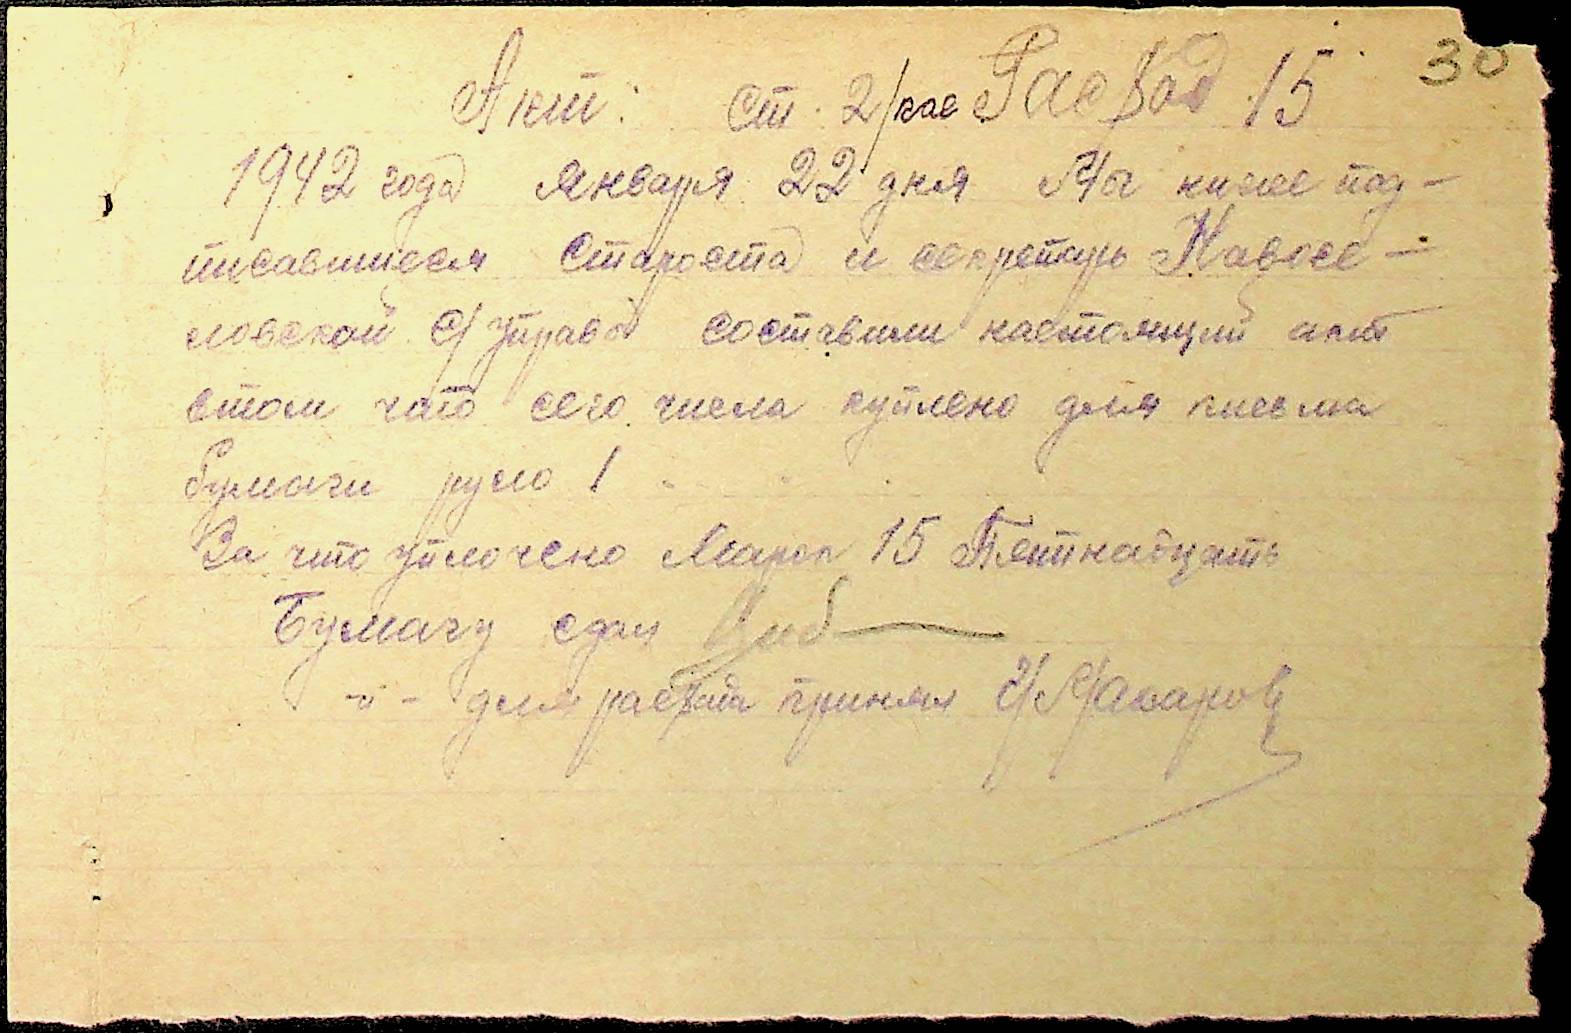 30
Акт. ст. 2/ Расход 15
1942 года января 22 дня Мы ниже под-
писавшиеся Староста и секретарь Навосе-
ловской с/управы составили настоящий акт
втом что сего числа куплено для письма
бумаги русо 1
За что уплочено Марок 15 Пятнадцать
Бумагу сдал
-"- для расхода принял Макаров